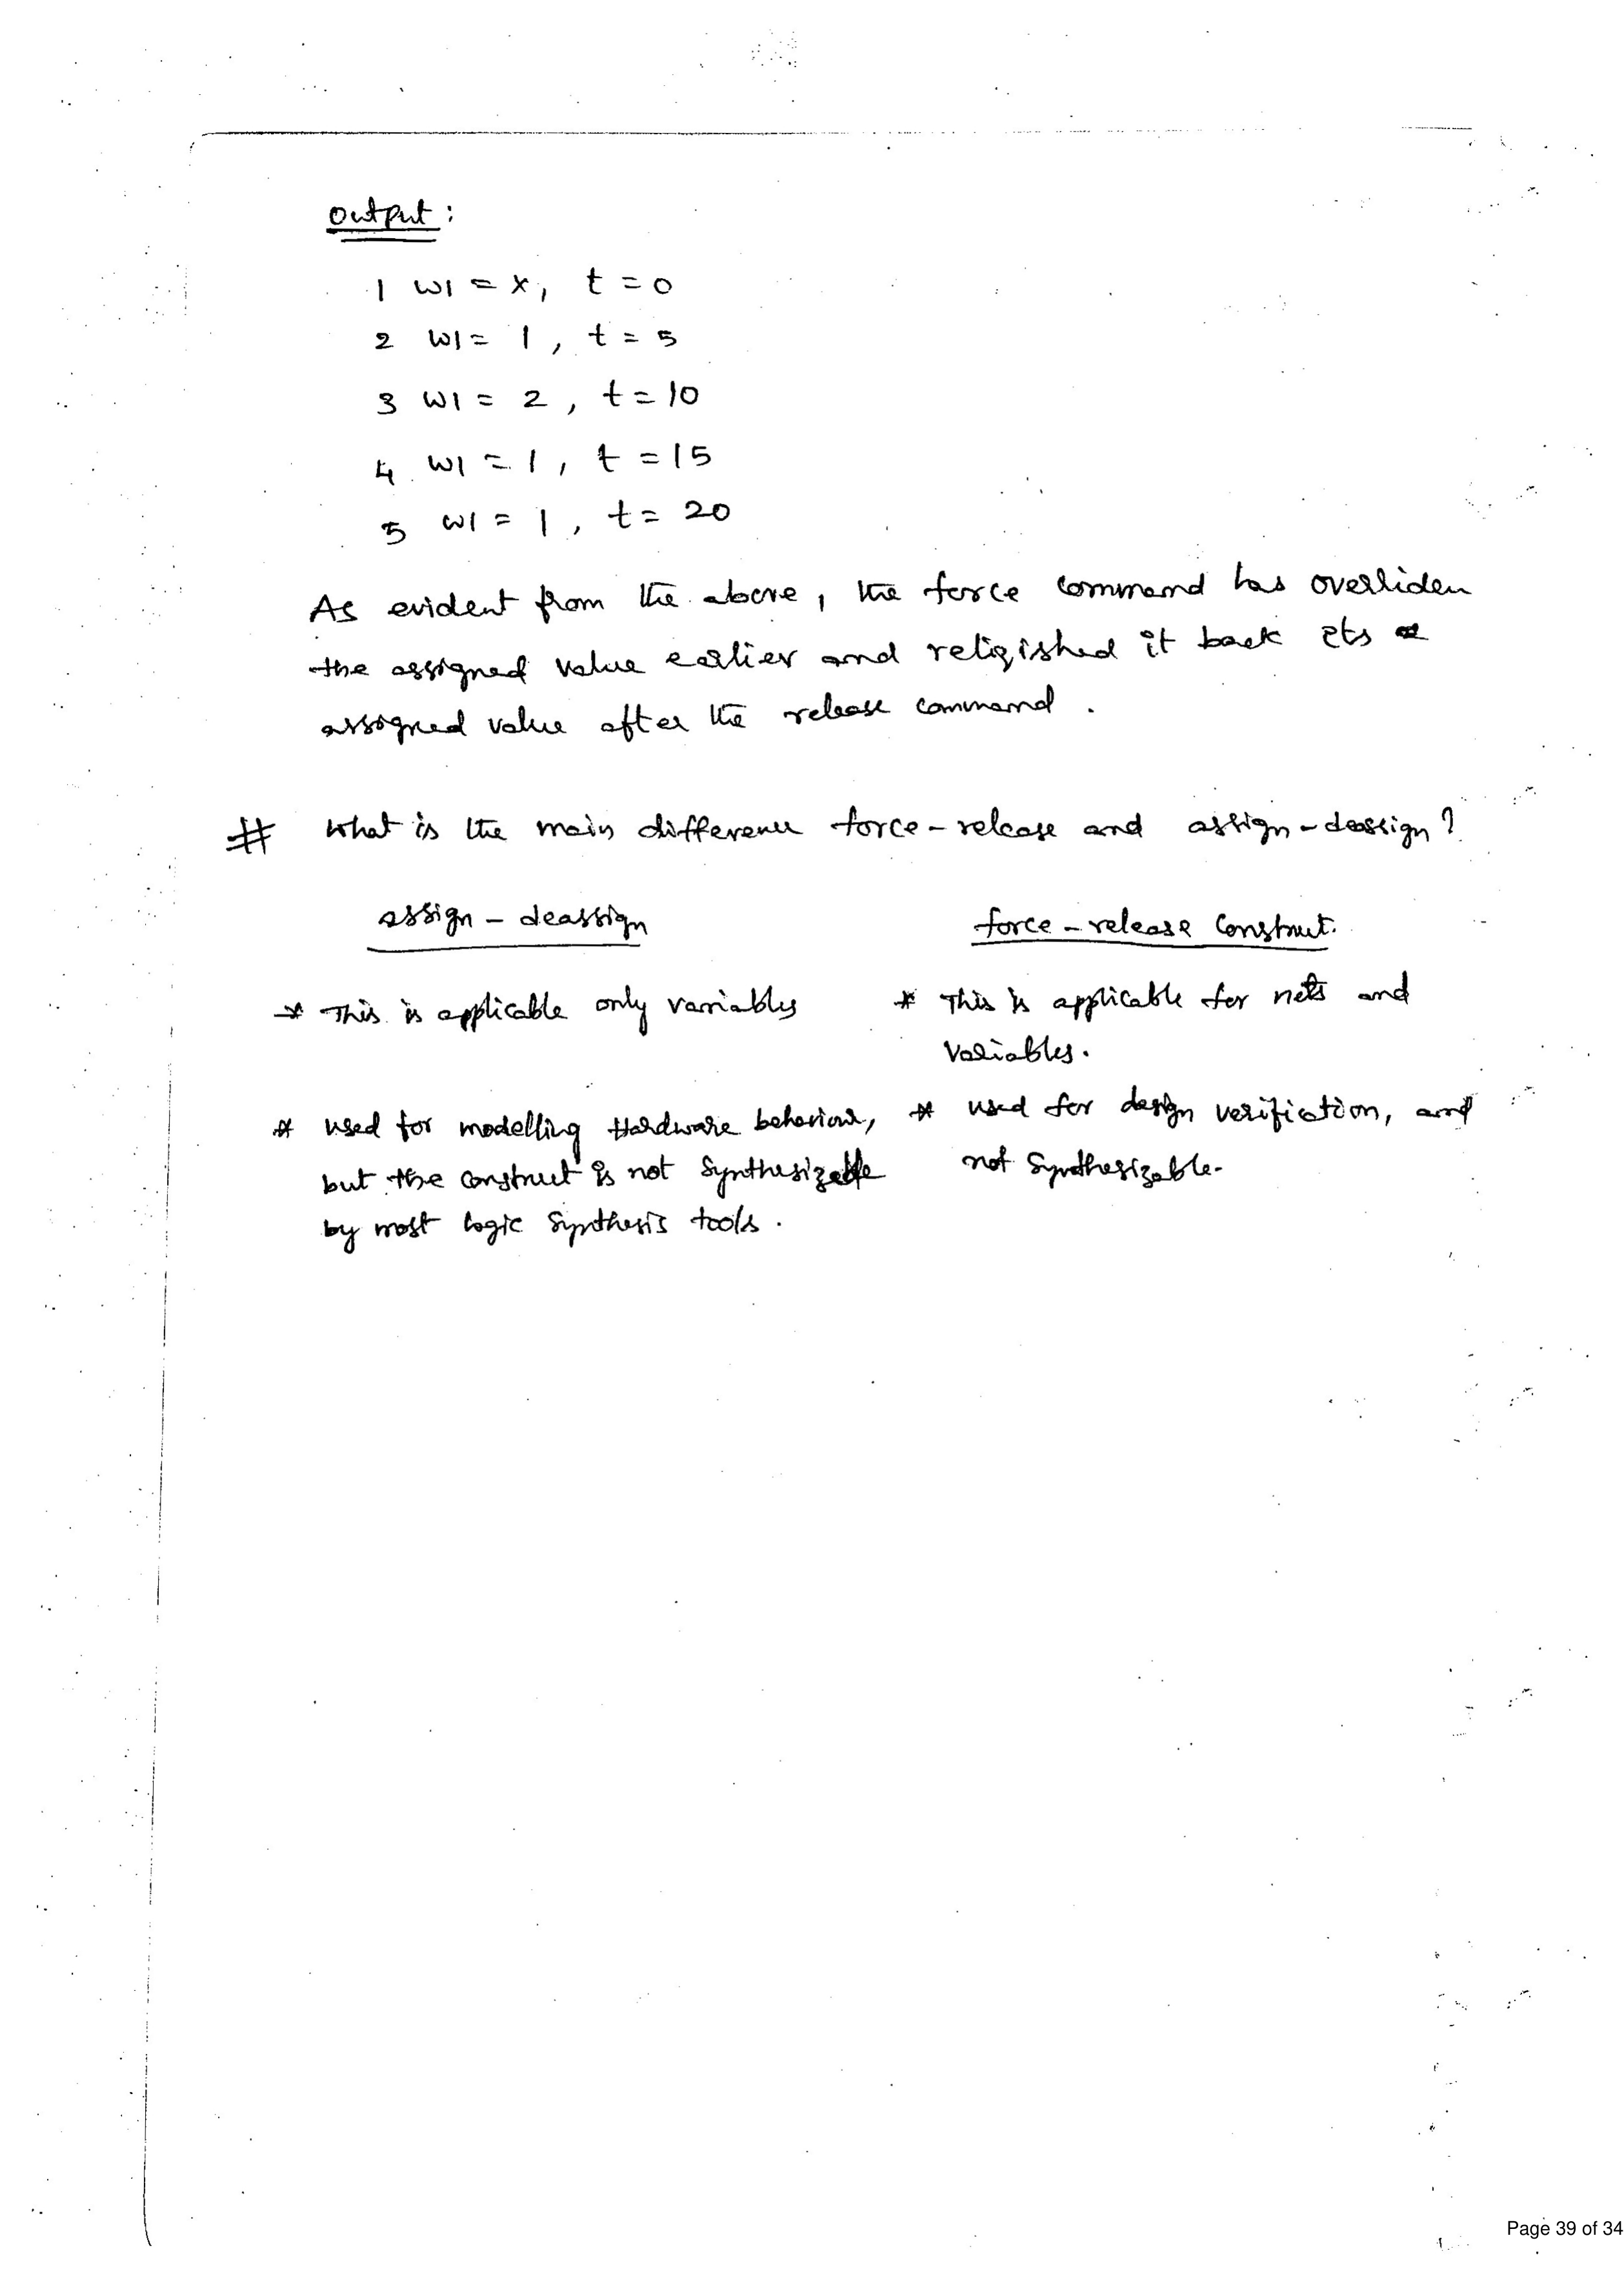 Output :
1 w1 = x, t = 0
2 w1 = 1, t = 5
3 w1 = 2, t = 10
4 w1 = 1, t = 15
5 w1 = 1, t = 20
As evident from the above, the force command has overriden
the assigned value earlier and reliqished it back its
assigned value after the release command.
# What is the main difference force-release and assign-deassign?
assign - deassign
force - release construct.
* This is applicable only variables
* This is applicable for nets and
variables.
* used for modelling Hardware behaviour,
but the construct is not synthesizable
by most logic synthesis tools.
* used for design verification, and
not synthesizable.
Page 39 of 34